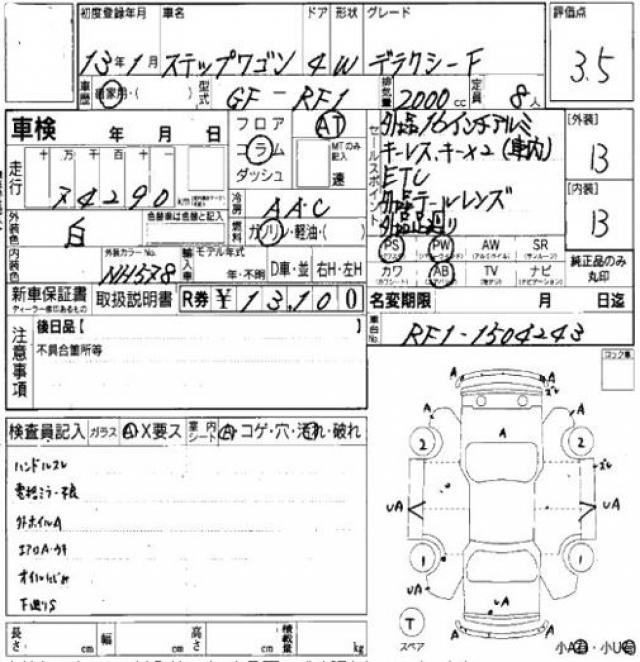 初度登録年月 車名 ドア 形状 グレード 評価点
13年1月 ステップワゴン 4 W デラクシーF 3.5
車歴 自家用・( ) 型式 GF-RF1 排気量 2000cc 定員 8人
車検 年 月 日
フロア AT
コラム MTのみ記入
ダッシュ 速
セールスポイント
外品16インチアルミ
キーレス、キーX2(車内)
ETC
外品テールレンズ
[外装]
B
[内装]
B
走行 十万千百十一
74290
冷房 AA・C
燃料 ガソリン・軽油・( )
外装色 白 色替車は色替と記入
内装色 外装カラーNo. NH578
輸入車 モデル年式 年・不明 D車・並 右H・左H
PS PW AW SR
(パワステ) (パワーウィンドウ) (アルミホイル) (サンルーフ)
カワ AB TV ナビ
(カワシート) (エアバッグ) (テレビ) (ナビゲーション)
純正品のみ丸印
新車保証書 取扱説明書 R券 ¥13,100
ディーラー印のあるもの
名変期限 月 日迄
車台No. RF1-1504243
注意事項
後日品【 】
不具合箇所等
コーション車
検査員記入 ガラス A・X要ス 室内シート A・コゲ・穴・汚れ・破れ
ハンドルスレ
電格ミラー不良
外ホイルA
エアロA・ウキ
オイルにじみ
下廻りS
A A
ズレ
A A A
2 2
ズレ
UA UA
1 1
UA A
T
スペア
A A
長さ cm 幅 cm 高さ cm 積載量 kg
小A有・小U有